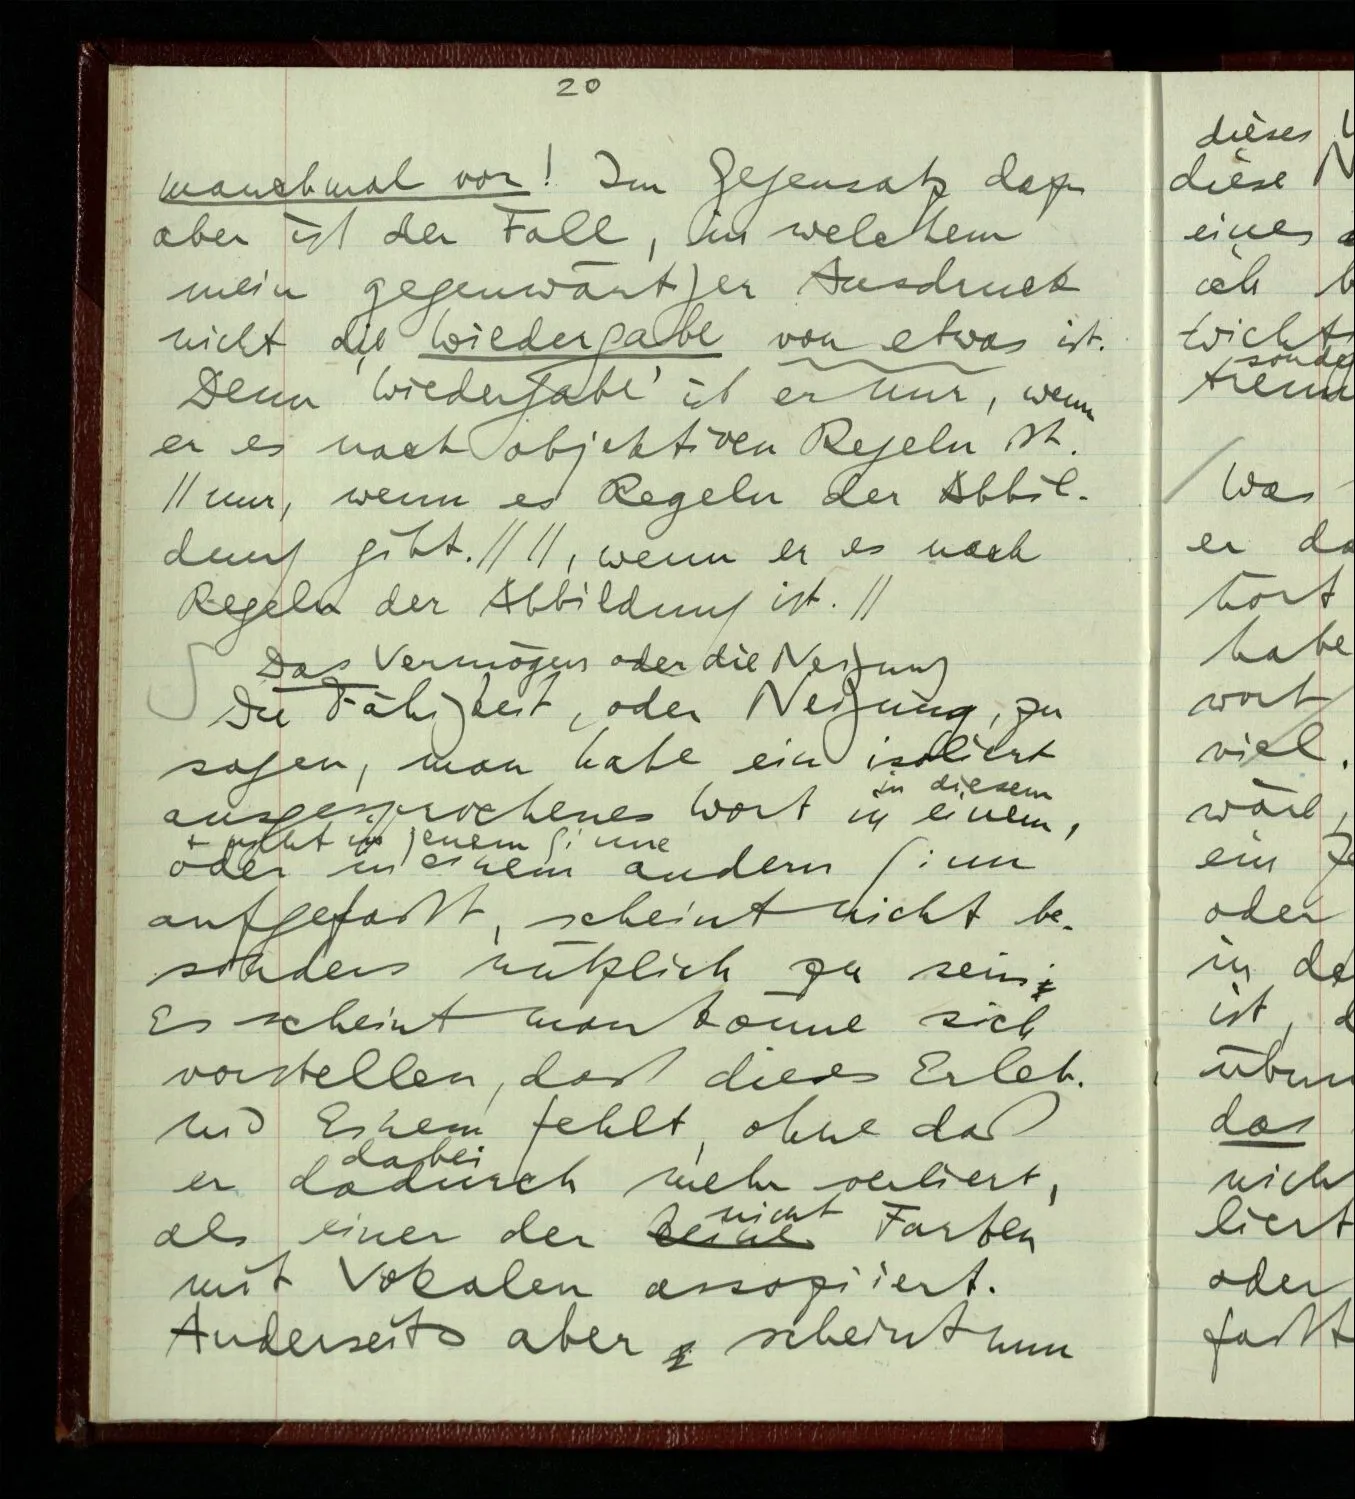 20
manchmal vor! Im Gegensatz dazu
aber ist der Fall, in welchem
mein gegenwärtiger Ausdruck
nicht die Wiedergabe von etwas ist.
Denn 'Wiedergabe' ist er nur, wenn
er es nach objektiven Regeln ist.
// nur, wenn es Regeln der Abbil-
dung gibt. // //, wenn er es nach
Regeln der Abbildung ist. //
S Das Vermögen oder die Neigung
Die Fähigkeit, oder Neigung, zu
sagen, man habe ein isoliert
in diesem
ausgesprochenes Wort in einem,
+ nicht in jenem Sinne
oder in einem andern Sinn
aufgefaßt, scheint nicht be-
sonders nützlich zu sein;
Es scheint man könne sich
vorstellen, daß dieses Erleb-
nis Einem fehlt, ohne daß
dabei
er dadurch mehr verliert,
nicht
als einer der keine Farben
mit Vokalen assoziiert.
Anderseits aber scheint nun
dieses
diese
eines
ich
wicht
sonde
trenn
Was
er da
hört
habe
wort
viel.
wäre,
ein
oder
in de
ist, d
übun
das
nich
liert
oder
faßt